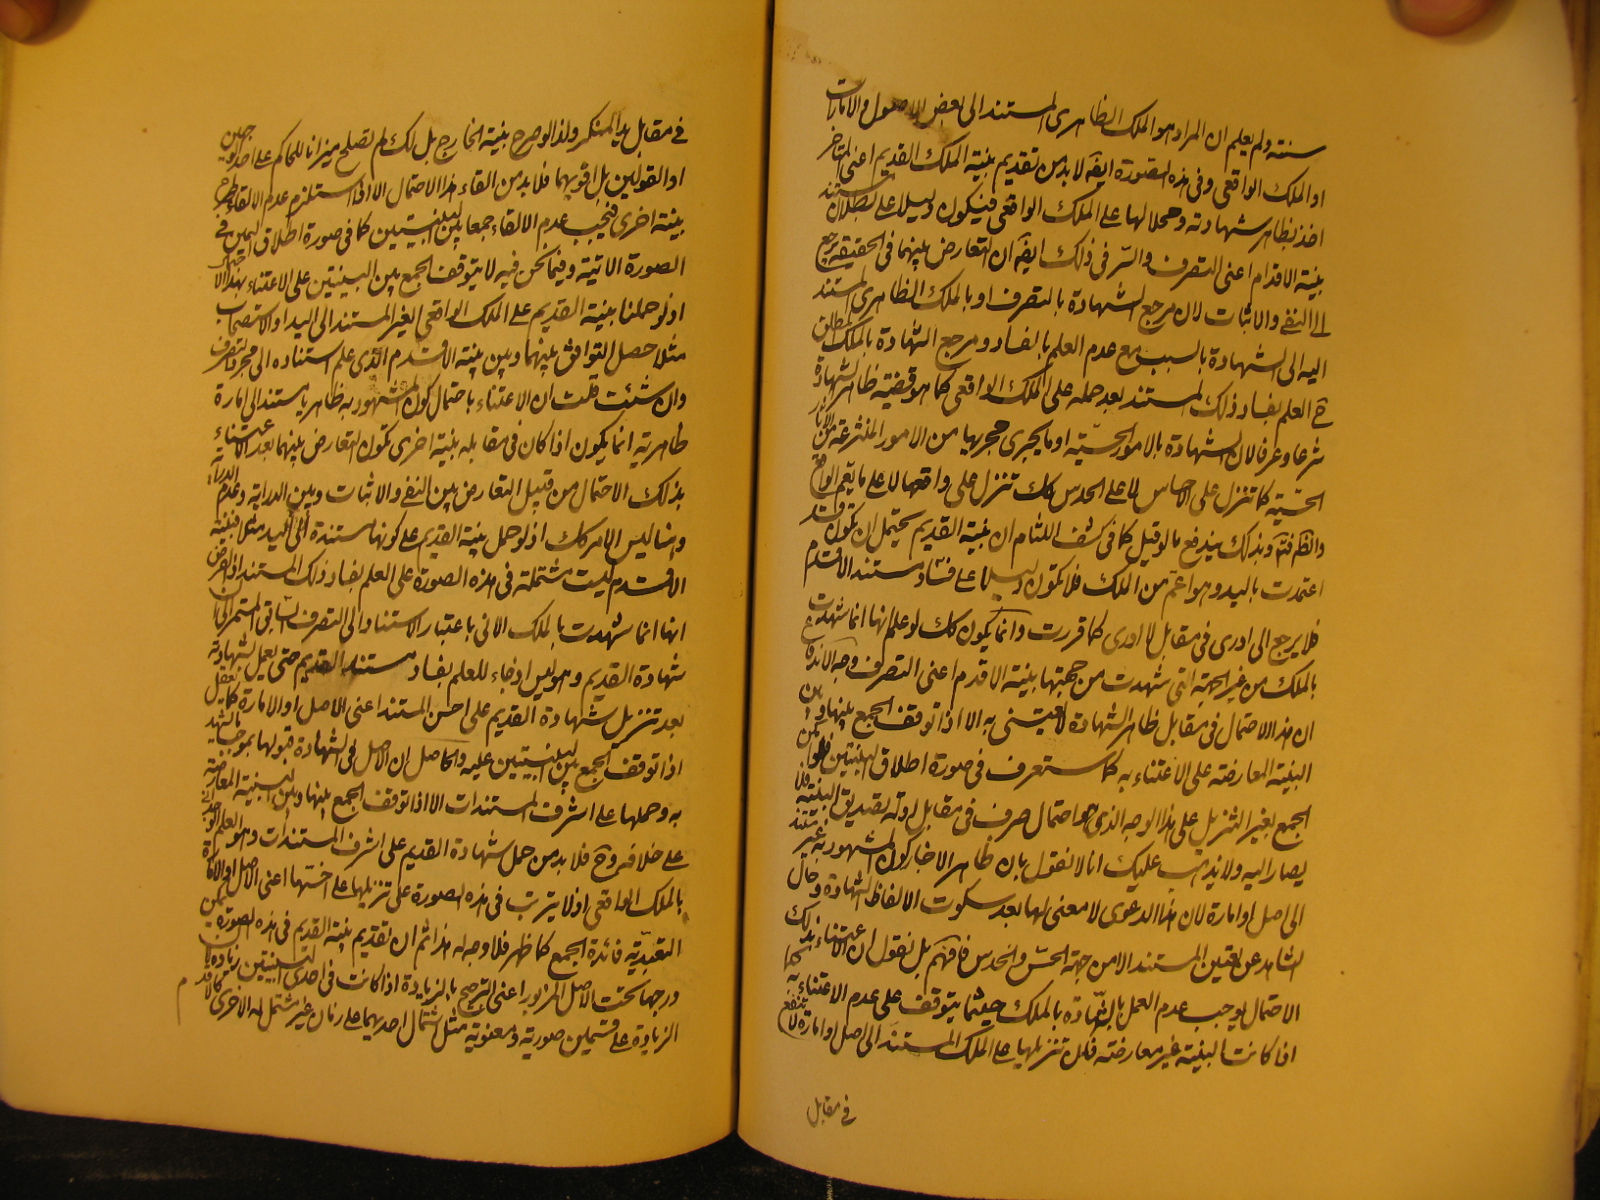 سنته ولم يعلم ان المراد هو الملك الظاهرى المستند الى بعض الاصول والامارات
او الملك الواقعى وفى هذه الصورة ايضا لا بد من تقديم بينة الملك القديم اعنى المتاخر
اخذ بظاهر شهادته وحملا لها على الملك الواقعى فيكون دليلا على بطلان مستند
بينة الاقدام اعنى التصرف والسر فى ذلك ايضا ان التعارض بينهما فى الحقيقة يرجع
الى النفى والاثبات لان مرجع الشهادة بالتصرف او بالملك الظاهرى المستند
اليه الى الشهادة بالسبب مع عدم العلم بالفساد ومرجع الشهادة بالملك المطلق
ح العلم بفساد ذلك المستند بعد حمله على الملك الواقعى كما هو قضية ظاهر الشهادة
شرعا وعرفا لان الشهادة بالامور الحسية او ما يجرى مجريها من الامور المنتزعة من الاثار
الحسية كما تنزل على الاحساس لا على الحدس كك تنزل على واقعها لا على ما يعم الواقع
والظاهر فتم وبذلك يندفع ما لو قيل كما فى كشف اللثام ان بينة القديم يحتمل ان تكون قد
اعتمدت باليد وهو اعم من الملك فلا تكون دليلا على فساد مستند الاقدم
فلا يرجع الى ادرى فى مقابل لا ادرى كما قررت وانما يكون كك لو علم انها انما شهدت
بالملك من غير الجهة التى شهدت من جهتها بينة الاقدم اعنى التصرف وجه الاندفاع
ان هذا الاحتمال فى مقابل ظاهر الشهادة لا يعتنى به الا اذا توقف الجمع بينها وبين
البينة المعارضة على الاعتناء به كما ستعرف فى صورة اطلاق البينتين فلو امكن
الجمع بغير التنزيل على هذا الوجه الذى هو احتمال صرف فى مقابل ادلة تصديق البينة فلا
يصار اليه ولا يذهب عليك انا لا نقول بان ظاهر الاخبار كون المشهور به غير مستند
الى اصل او امارة لان هذا الدعوى لا معنى لها بعد سكوت الالفاظ الشهادة وحال
الشاهد عن تعيين المستند الا من جهة الحس والحدس فافهم بل نقول ان الاعتناء بذلك
الاحتمال يوجب عدم العمل بالشهادة بالملك حيثما يتوقف على عدم الاعتناء به كما
اذا كانت البينة غير معارضة فان تنزيلها على الملك المستند الى اصل او امارة لا تنفع
فى مقابل
فى مقابل يد المنكر ولذا لو صرح بينة الخارج بذلك لم تصلح ميزانا للحاكم على احد الوجهين
او القولين بل اقويهما فلا بد من القاء هذا الاحتمال الا اذا استلزم عدم الالقاء طرح
بينة اخرى فيجب عدم الالقاء جمعا بين البينتين كما فى صورة اطلاق اليمين فى
الصورة الاتية وفيما نحن فيه لا يتوقف الجمع بين البينتين على الاعتناء بهذا الاحتمال
اذ لو حملنا بينة القديم على الملك الواقعى الغير المستند الى اليد او الاستصحاب
مثلا حصل التوافق بينهما وبين بينة الاقدم الذى علم استناده الى مجرد التصرف
وان شئت قلت ان الاعتناء باحتمال كون المشهور به ظاهريا مستند الى امارة
ظاهرية انما يكون اذا كان فى مقابله بينة اخرى تكون التعارض بينهما بعد الاعتناء
بذلك الاحتمال من قبيل التعارض بين النفى والاثبات وبين الدراية وعدم الدراية
وهنا ليس الامر كك اذ لو حمل بينة القديم على كونها مستندة الى اليد مثلا فبينة
الاقدم ليست مشتملة فى هذه الصورة على العلم بفساد ذلك المستند اذ الفرض
انها انما شهدت بالملك الانى باعتبار الاستناد الى التصرف السابق المستمر الى زمان
شهادة القديم وهو ليس ادعاء للعلم بفساد مستند القديم حتى يعمل بشهادته
بعد تنزيل شهادة القديم على احسن المستند اعنى الاصل او الامارة كما يفعل
اذا توقف الجمع بين البينتين عليه والحاصل ان الاصل فى الشهادة قبولها بموجب ما شهد
به وحملها على اشرف المستندات الا اذا توقف الجمع بينها وبين البينة المعارضة
على خلافه وح فلا بد من حمل شهادة القديم على اشرف المستندات وهو العلم الوجدانى
بالملك الواقعى اذ لا يترتب فى هذه الصورة على تنزيلها على اخسها اعنى الاصل او الامارة
التعبدية فائدة الجمع كما ظهر فلا وجه له هذا ثم ان تقديم بينة القديم فى هذه الصورة يمكن
درجها تحت الاصل المزبور اعنى الترجيح بالزيادة اذا كانت فى احدى البينتين زيادة لان
الزيادة على قسمين صورية ومعنوية مثل اشتمال احديهما على زمان غير مشتمل له الاخرى كالاقدم